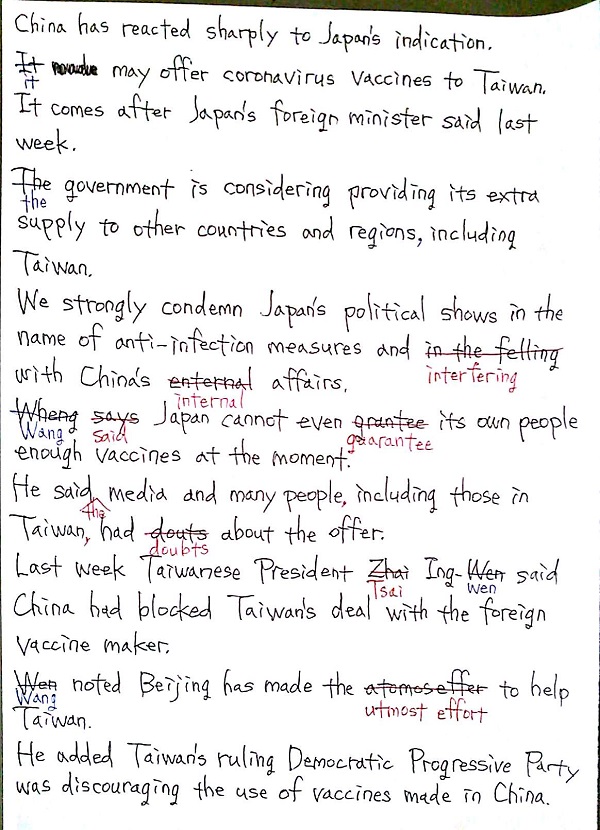 China has reacted sharply to Japan's indication.
It may offer coronavirus vaccines to Taiwan.
it
It comes after Japan's foreign minister said last
week.
The government is considering providing its extra
the
supply to other countries and regions, including
Taiwan.
We strongly condemn Japan's political shows in the
name of anti-infection measures and in the felling
interfering
with China's enternal affairs.
internal
Wheng says Japan cannot even grantee its own people
Wang said guarantee
enough vaccines at the moment.
He said media and many people, including those in
the
Taiwan, had douts about the offer.
doubts
Last week Taiwanese President Zhai Ing-Wen said
Tsai wen
China had blocked Taiwan's deal with the foreign
vaccine maker.
Wen noted Beijing has made the atomos effer to help
Wang utmost effort
Taiwan.
He added Taiwan's ruling Democratic Progressive Party
was discouraging the use of vaccines made in China.